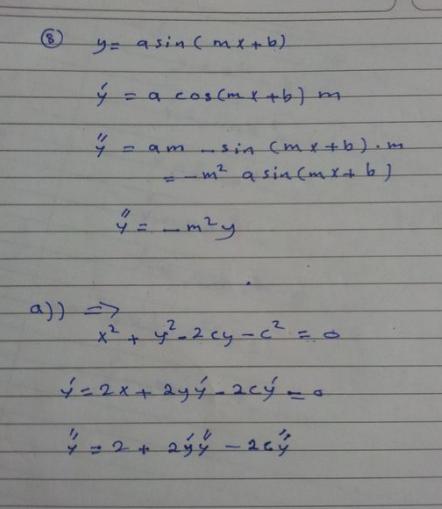 ⑧ y = a sin(mx+b)
y´ = a cos(mx+b) m
y´´ = am - sin (mx+b).m
= -m² a sin(mx+b)
y´´ = -m²y
a)) ⇒
x² + y² - 2cy - c² = 0
y´ = 2x + 2yy´ - 2cy´ = 0
y´´ = 2 + 2y´y´´ - 2cy´´